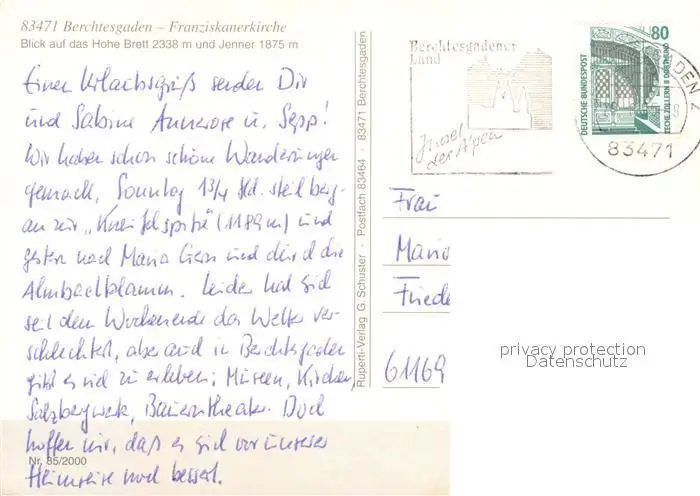 83471 Berchtesgaden – Franziskanerkirche
Blick auf das Hohe Brett 2338 m und Jenner 1875 m
Einen Urlaubsgruß senden Dir
und Sabine Annerose u. Sepp!
Wir haben schon schöne Wanderungen
gemacht, Sonntag 1 3/4 Std. steil berg-
an zur „Kneifelspitze" (1189m) und
gestern nach Maria Gern und durch die
Almbachklamm. Leider hat sich
seit dem Wochenende das Wetter ver-
schlechtert, aber auch in Berchtesgaden
gibt es viel zu erleben; Museen, Kirchen,
Salzbergwerk, Bauerntheater. Doch
hoffen wir, daß es sich vor unserer
Heimreise noch bessert.
Nr. 85/2000
Ruperti-Verlag G. Schuster · Postfach 83464 · 83471 Berchtesgaden
Berchtesgadener
Land
Insel
der Alpen
80
DEUTSCHE BUNDESPOST
ZECHE ZOLLERN II DORTMUND
83471
Frau
Friede
61169
privacy protection
Datenschutz